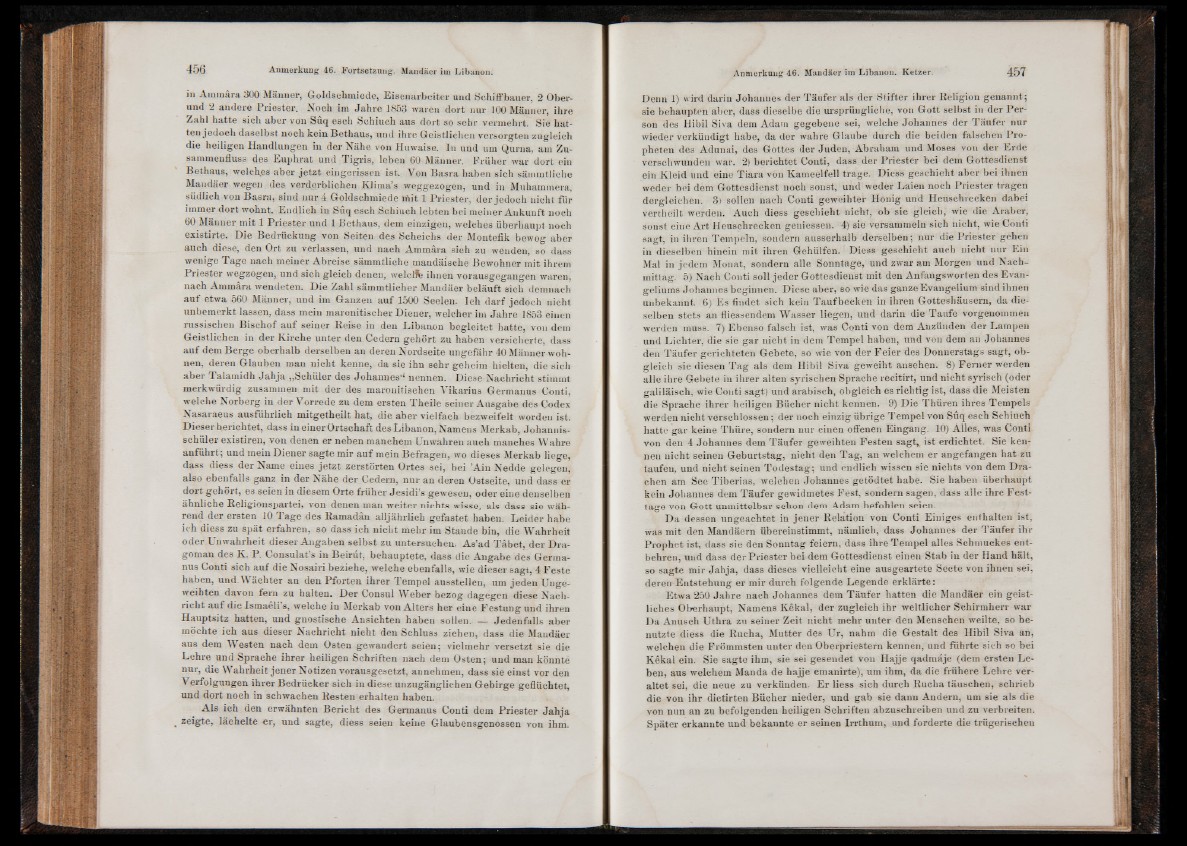 456 Anmerkung 46. Fortsetzung. Mandäer im Libanon.
in Ammâra 300 Männer, Goldschmiede, Eisenarbeiter und Schiffbauer, 2 Ober-
und 2 andere Priester. Noch im Jahre 1853 waren dort nur 100 Männer, ihre
Zahl hatte sich aber von Sûq esch Schiuch aus dort so sehr vermehrt. Sie hat-
ten jedoch daselbst noch kein Bethaus, und ihre Geistlichen versorgten zugleich
die heiligen Handlungen in der Nähe von Huwaise. In und um Qurna, am Zu-
sammenfluss des Euphrat und Tigris, leben 60 Männer. Früher war dort ein
Bethaus, welches aber jetzt eingerissen ist. Von Basra haben sich sämmtliche
Mandäer wegen des verderblichen Klima's weggezogen, und in Muhammera,
südlich von Basra, sind nur 4 Goldschmiede mit 1 Priester, der jedoch nicht für
immer dort wohnt. Endlich in Sûq esch Schiuch lebten bei meiner Ankunft noch
60 Männer mit 1 Priester und 1 Bethaus, dem einzigen, welches überhaupt noch
existirte. Die Bedrückung von Seiten des Scheichs der Montefik bewog aber
auch diese, den Ort zu verlassen, und nach Ammâra sich zu wenden, so dass
wenige Tage nach meiner Abreise sämmtliche mandäische Bewohner mit ihrem
Priester wegzogen, und sich gleich denen, welche ihnen vorausgegangen waren,
nach Ammâra wendeten. Die Zahl sämmtlicher Mandäer beläuft sich demnach
auf etwa 560 Männer, und im Ganzen auf 1500 Seelen. Ich darf jedoch nicht
unbemerkt lassen, dass mein maronitischer Diener, welcher im Jahre 1853 einen
russischen Bischof auf seiner Reise in den Libanon begleitet hatte, von dem
Geistlichen in der Kirche unter den Cedern gehört zu haben versicherte, dass
auf dem Berge oberhalb derselben an deren Nordseite ungefähr 40 Männer woh-
nen, deren Glauben man nicht kenne, da sie ihn sehr geheim hielten, die sich
aber Talamidh Jahja „Schüler des Johannes“ nennen. Diese Nachricht stimmt
merkwürdig zusammen mit der des maronitischen Vikarius Germanus Conti,
welche Norberg in der Vorrede zu dem ersten Theile seiner Ausgabe des Codex
Nasaraeus ausführlich mitgetheilt hat, die aber vielfach bezweifelt worden ist.
Dieser berichtet, dass in einer Ortschaft des Libanon, Namens Merkab, Johannis-
schüler existiren, von denen er neben manchem Unwahren auch manches Wahre
anführt; und mein Diener sagte mir auf mein Befragen, wo dieses Merkab liege,
dass diess der Name eines jetzt zerstörten Ortes sei, bei 'Ain Nedde gelegen,
also ebenfalls ganz in der Nähe der Cedern, nur an deren Ostseite, und dass er
dort gehört, es seien in diesem Orte früher Jesidi's gewesen, oder eine denselben
ähnliche Religionspartei, von denen man weiter nichts wisse, als dass sie wäh-
rend der ersten 10 Tage des Ramadân alljährlich gefastet haben. Leider habe
ich diess zu spät erfahren, so dass ich nicht mehr im Stande bin, die Wahrheit
oder Unwahrheit dieser Angaben selbst zu untersuchen. As'ad Tâbet, der Dra-
goman des K. P. Consulat's in Beirût, behauptete, dass die Angabe des Germa-
nus Conti sich auf die Nosairi beziehe, welche ebenfalls, wie dieser sagt, 4 Feste
haben, und Wächter an den Pforten ihrer Tempel ausstellen, um jeden Unge-
weihten davon fern zu halten. Der Consul Weber bezog dagegen diese Nach-
richt auf die Ismaëli's, welche in Merkab von Alters her eine Festung und ihren
Hauptsitz hatten, und gnostische Ansichten haben sollen. — Jedenfalls aber
möchte ich aus dieser Nachricht nicht den Schluss ziehen, dass die Mandäer
aus dem Westen nach dem Osten gewandert seien; vielmehr versetzt sie die
Lehre und Sprache ihrer heiligen Schriften nach dem Osten; und man könnte
nur, die Wahrheit jener Notizen vorausgesetzt, annehmen, dass sie einst vor den
Verfolgungen ihrer Bedrücker sich in diese unzugänglichen Gebirge geflüchtet,
und dort noch in schwachen Resten erhalten haben.
Als ich den erwähnten Bericht des Germanus Conti dem Priester Jahja
zeigte, lächelte er, und sagte, diess seien keine Glaubensgenossen von ihm.
Anmerkung 46. Mandäer im Libanon. Ketzer. 457
Denn 1) wird darin Johannes der Täufer als der Stifter ihrer Religion genannt;
sie behaupten aber, dass dieselbe die ursprüngliche, von Gott selbst in der Per-
son des Hibil Siva dem Adam gegebene sei, welche Johannes der Täufer nur
wieder verkündigt habe, da der wahre Glaube durch die beiden falschen Pro-
pheten des Adunai, des Gottes der Juden, Abraham und Moses von der Erde
verschwunden war. 2) berichtet Conti, dass der Priester bei dem Gottesdienst
ein Kleid und eine Tiara von Kameelfell trage. Diess geschieht aber bei ihnen
weder bei dem Gottesdienst noch sonst, und weder Laien noch Priester tragen
dergleichen. 3) sollen nach Conti geweihter Honig und Heuschrecken dabei
vertheilt werden. Auch diess geschieht nicht, ob sie gleich, wie die Araber,
sonst eine Art Heuschrecken geniessen. 4) sie versammeln sich nicht, wie Conti
sagt, in ihren Tempeln, sondern ausserhalb derselben; nur die Priester gehen
in dieselben hinein mit ihren Gehülfen. Diess geschieht auch nicht nur Ein
Mal in jedem Monat, sondern alle Sonntage, und zwar am Morgen und Nach-
mittag. 5) Nach Conti soll jeder Gottesdienst mit den Anfangsworten des Evan-
geliums Johannes beginnen. Diese aber, so wie das ganze Evangelium sind ihnen
unbekannt. 6) Es findet sich kein Taufbecken in ihren Gotteshäusern, da die-
selben stets an fliessendem Wasser liegen, und darin die Taufe vorgenommen
werden muss. 7) Ebenso falsch ist, was Conti von dem Anzünden der Lampen
und Lichter, die sie gar nicht in dem Tempel haben, und von dem an Johannes
den Täufer gerichteten Gebete, so wie von der Feier des Donnerstags sagt, ob-
gleich sie diesen Tag als dem Hibil Siva geweiht ansehen. 8) Ferner werden
alle ihre Gebete in ihrer alten syrischen Sprache recitirt, und nicht syrisch (oder
galiläisch, wie Conti sagt) und arabisch, obgleich es richtig ist, dass die Meisten
die Sprache ihrer heiligen Bücher nicht kennen. 9) Die Thüren ihres Tempels
werden nicht verschlossen; der noch einzig übrige Tempel von Sûq esch Schiuch
hatte gar keine Thüre, sondern nur einen offenen Eingang. 10) Alles, was Conti
von den 4 Johannes dem Täufer geweihten Festen sagt, ist erdichtet. Sie ken-
nen nicht seinen Geburtstag, nicht den Tag, an welchem er angefangen hat zu
taufen, und nicht seinen Todestag; und endlich wissen sie nichts von dem Dra-
chen am See Tiberias, welchen Johannes getödtet habe. Sie haben überhaupt
kein Johannes dem Täufer gewidmetes Fest, sondern sagen, dass alle ihre Fest-
tage von Gott unmittelbar schon dem Adam befohlen seien.
Da dessen ungeachtet in jener Relation von Conti Einiges enthalten ist,
was mit den Mandäern übereinstimmt, nämlich, dass Johannes der Täufer ihr
Prophet ist, dass sie den Sonntag feiern, dass ihre Tempel alles Schmuckes ent-
behren, und dass der Priester bei dem Gottesdienst einen Stab in der Hand hält,
so sagte mir Jahja, dass dieses vielleicht eine ausgeartete Secte von ihnen sei,
deren Entstehung er mir durch folgende Legende erklärte:
Etwa 250 Jahre nach Johannes dem Täufer hatten die Mandäer ein geist-
liches Oberhaupt, Namens Kêkal, der zugleich ihr weltlicher Schirmherr war
Da Anusch Uthra zu seiner Zeit nicht mehr unter den Menschen weilte, so be-
nutzte diess die Rucha, Mutter des Ur, nahm die Gestalt des Hibil Siva an,
welchen die Frömmsten unter den Oberpriestern kennen, und führte sich so bei
Kêkal ein. Sie sagte ihm, sie sei gesendet von Hajje qadmâje (dem ersten Le-
ben, aus welchem Manda de hajje emanirte), um ihm, da die frühere Lehre ver-
altet sei, die neue zu verkünden. Er liess sich durch Rucha täuschen, schrieb
die von ihr dictirten Bücher nieder, und gab sie dann Andern, um sie als die
von nun an zu befolgenden heiligen Schriften abzuschreiben und zu verbreiten.
Später erkannte und bekannte er seinen Irrthum, und forderte die trügerischen